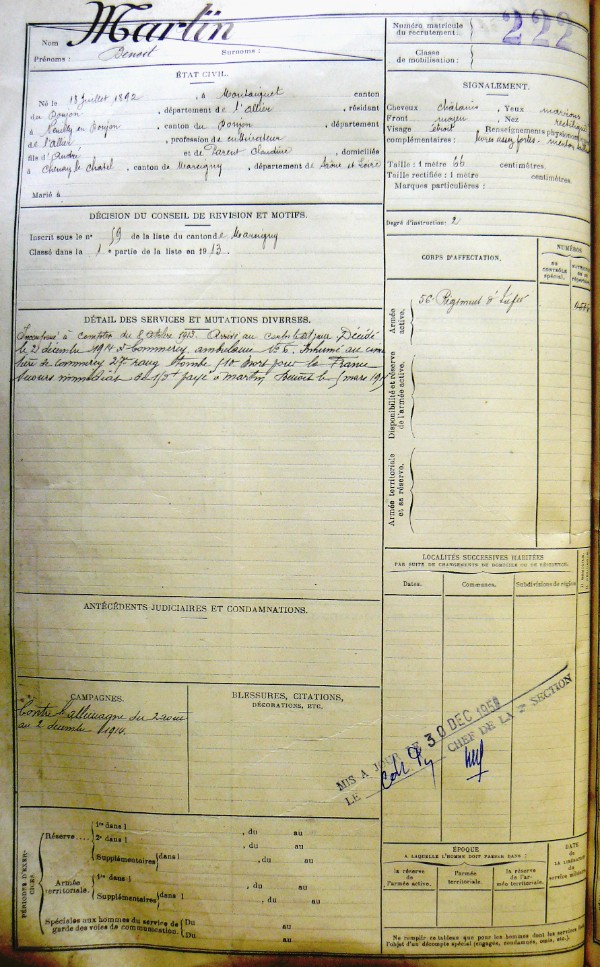 Nom Martin
Prénoms : Benoit Surnoms :
Numéro matricule
du recrutement :
222
Classe
de mobilisation :
ÉTAT CIVIL.
Né le 13 juillet 1892, à Montaiguet canton
du Donjon, département de l'Allier, résidant
à Neuilly en Donjon, canton du Donjon, département
de l'Allier, profession de cultivateur
fils d'André et de Parent Claudine, domiciliés
à Chenay le Chatel, canton de Marcigny, département de Saône et Loire
Marié à
SIGNALEMENT.
Cheveux châtains Yeux marrons
Front moyen Nez rectiligne
Visage étroit Renseignements physionomiques
complémentaires : assez fortes - menton
Taille : 1 mètre 66 centimètres.
Taille rectifiée : 1 mètre centimètres.
Marques particulières :
Degré d'instruction : 2
DÉCISION DU CONSEIL DE REVISION ET MOTIFS.
Inscrit sous le n° 59 de la liste du canton de Marcigny
Classé dans la 1e partie de la liste en 1913.
DÉTAIL DES SERVICES ET MUTATIONS DIVERSES.
Incorporé à compter du 8 octobre 1913. Arrivé au corps le dit jour. Décédé
le 2 décembre 1914 à Commercy ambulance N° 6. Inhumé au cime
tière de Commercy 27e rang tombe Mort pour la France
Secours immédiat de 150f payé à Martin le 5 mars
CORPS D'AFFECTATION.
NUMÉROS
AU
CONTRÔLE
SPÉCIAL.
Armée
active.
56e Régiment d'Infie
Disponibilité et réserve
de l'armée active.
Armée territoriale
et sa réserve.
LOCALITÉS SUCCESSIVES HABITÉES
PAR SUITE DE CHANGEMENTS DE DOMICILE OU DE RÉSIDENCE.
Dates. Communes. Subdivisions de région
ANTÉCÉDENTS JUDICIAIRES ET CONDAMNATIONS.
CAMPAGNES.
Contre l'Allemagne du 2 août
au 2 décembre 1914.
BLESSURES, CITATIONS,
DÉCORATIONS, ETC.
MIS A JOUR LE 30 DEC 1958
LE CHEF DE LA 2e SECTION
PÉRIODES D'EXER-
CICES.
Réserve....
1re dans l , du au
2e dans l , du au
Supplémentaires dans l , du au
Armée
territoriale.
1re dans l , du au
Supplémentaires dans l , du au
Spéciales aux hommes du service de
garde des voies de communication.
Du au
Du au
ÉPOQUE
À LAQUELLE L'HOMME DOIT PASSER DANS :
la réserve
de l'armée active.
l'armée
territoriale.
la réserve
de l'ar-
mée territoriale.
DATE
DE
LA LIBÉRATION
DU
SERVICE MILITAIRE
Ne remplir ce tableau que pour les hommes dont les services
l'objet d'un décompte spécial (engagés, condamnés, omis, etc.).